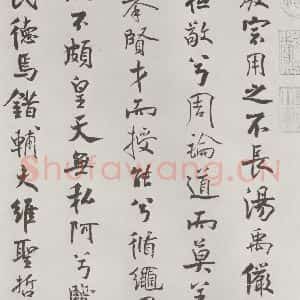 殷宗用之不長湯禹儼
祗敬兮周論道而莫差
舉賢才而授能兮循繩
不頗皇天無私阿兮覽
民德焉錯輔夫維聖哲
Shufawang.CN